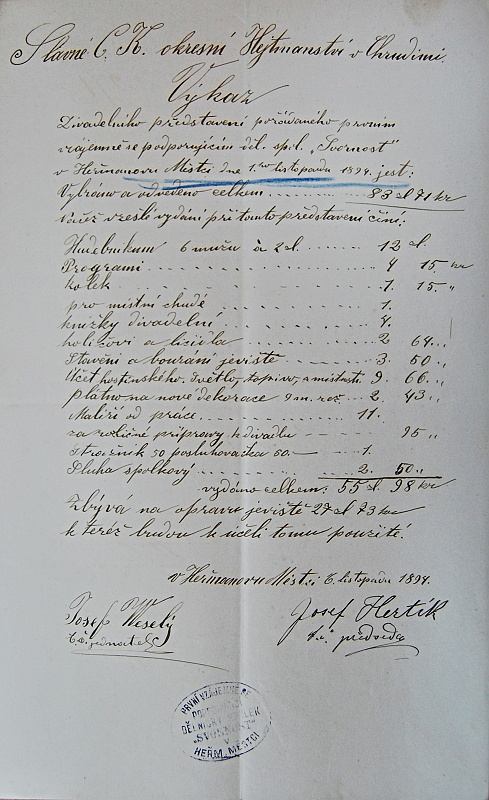 Slavné C. K. okresní Hejtmanství v Chrudimi.
Výkaz
Divadelního představení pořádaného prvním
vzájemně se podporujícím děl. spol. „Svornost"
v Heřmanovu Městci dne 1.ho listopadu 1894. jest:
Vybráno a odvedeno celkem ........ 83 zl 71 kr
vzešlé vydání při tomto představení činí:
Hudebníkum 6 mužu à 2 zl. ....... 12 zl.
Programi ............ 4 15 kr
kolek ............ 1. 15 „
pro místní chudé ........ 1.
knížky divadelní ........ 4.
holičovi a líčidla ........ 2 64 „
Stavění a bourání jeviště ..... 3. 50 „
Účet hostinského. Světlo, topivo, a místnosti 9. 66 „
plátno na nové dekorace 9 m. ... 2. 43 „
Malíři od práce ....... 11.
za rozličné přípravy k divadlu ---- 95 „
Strážník 50 posluhovačka 50. — 1.
Sluha spolkový ........ 2. 50 „
vydáno celkem: 55 zl. 98 kr
Zbývá na opravu jeviště 27 zl 73 kr
k teréž budou k účeli tomu použité.
v Heřmanovu Městci 6. listopadu 1894.
Josef Weselý Josef Hertík
t. č. jednatel t. č. předseda
PRVNÍ VZÁJEMNĚ SE
DĚLNICKÝ SPOLEK
„SVORNOST"
V
HEŘM. MĚSTCI